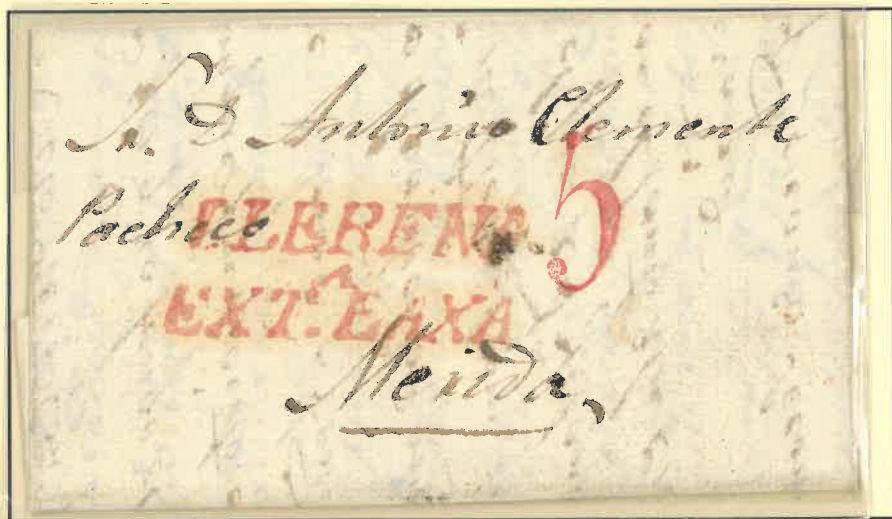 Sr. D Antonio Clemente
Pacheco
LLERENA.
5
EXT.ª BAXA
Merida